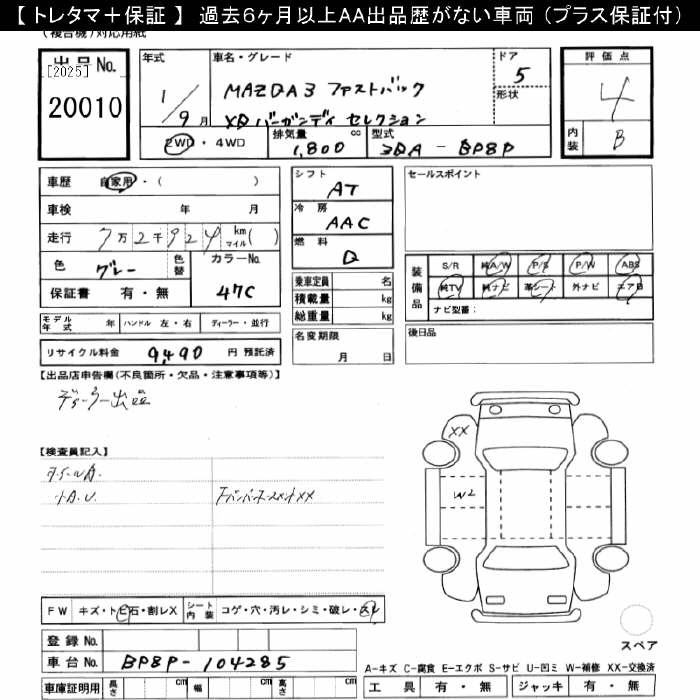 【 トレタマ＋保証 】 過去６ヶ月以上ＡＡ出品歴がない車両（プラス保証付）
(複合機)対応用紙
出品No.
[2025]
20010
年式
1/9月
車名・グレード
MAZDA3 ファストバック
XD バーガンディ セレクション
ドア
5
形状
2WD・4WD
排気量
1,800 cc
型式
3DA - BP8P
評価点
4
内装
B
車歴 自家用・( )
車検 年 月
走行 7万2千924 km マイル( )
色 グレー
色替
カラーNo. 47C
保証書 有・無
シフト
AT
冷房
AAC
燃料
D
乗車定員 名
積載量 kg
総重量 kg
セールスポイント
装備品
S/R 純A/W P/S P/W ABS
純TV 純ナビ 革シート 外ナビ エアB
ナビ型番：
モデル年式 年 ハンドル 左・右 ディーラー・並行
リサイクル料金 9,490 円 預託済
名変期限
月 日
後日品
【出品店申告欄(不良箇所・欠品・注意事項等)】
ディーラー出品
【検査員記入】
XX
W2
FW キズ・トビ石・割レX
シート内装 コゲ・穴・汚レ・シミ・破レ・スレ
登録No.
車台No. BP8P-104285
車庫証明用 長さ cm 幅 cm 高さ cm
スペア
A-キズ C-腐食 E-エクボ S-サビ U-凹ミ W-補修 XX-交換済
工具 有・無 ジャッキ 有・無